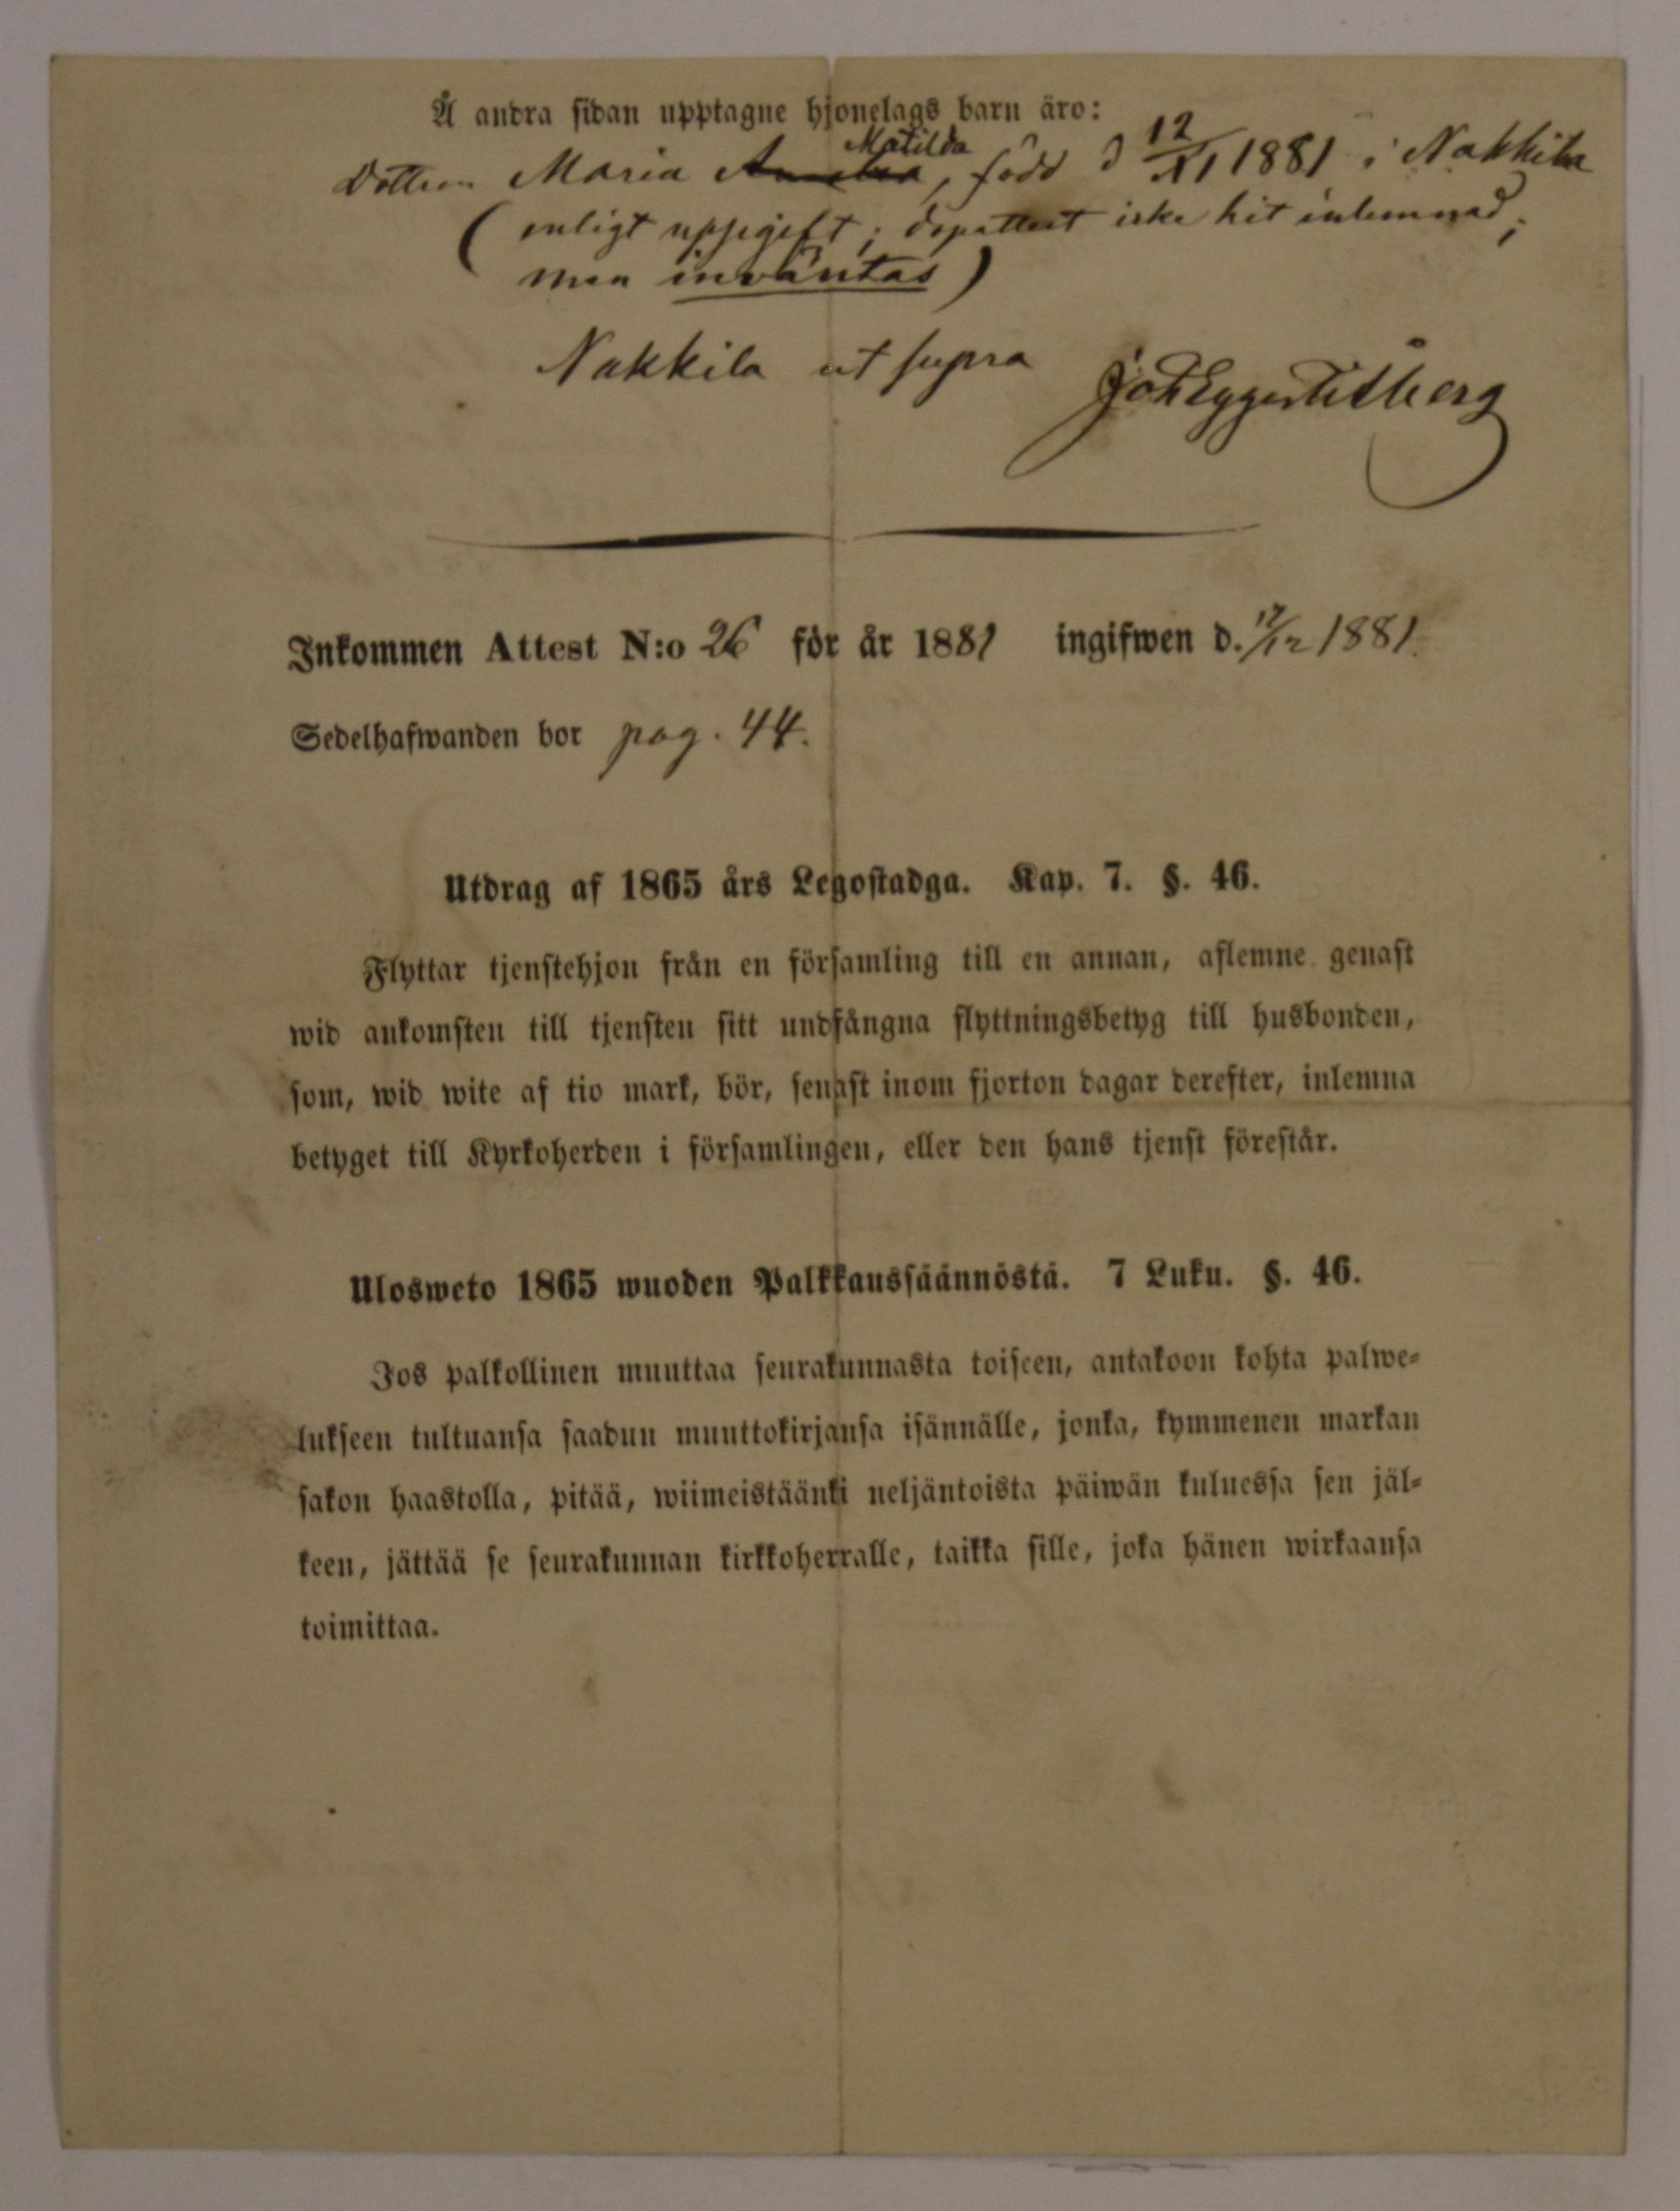 Å andra sidan upptagne hjonelags barn äro:
Matilda
Dottren Maria, född d 12/XI 1881 i Nakkila
(enligt uppgift; dopattest icke hit inlemnad;
men inväntas)
Nakkila ut supra
Inkommen Attest N:o 26 för år 1881 ingifwen d. 17/12 1881.
Sedelhafwanden bor pag. 44.
Utdrag af 1865 års Legostadga. Kap. 7. §. 46.
Flyttar tjenstehjon från en församling till en annan, aflemne genast
wid ankomsten till tjensten sitt undfångna flyttningsbetyg till husbonden,
som, wid wite af tio mark, bör, senast inom fjorton dagar derefter, inlemna
betyget till Kyrkoherden i församlingen, eller den hans tjenst förestår.
Ulosweto 1865 wuoden Palkkaussäännöstä. 7 Luku. §. 46.
Jos palkollinen muuttaa seurakunnasta toiseen, antakoon kohta palwe-
lukseen tultuansa saadun muuttokirjansa isännälle, jonka, kymmenen markan
sakon haastolla, pitää, wiimeistäänki neljäntoista päiwän kuluessa sen jäl-
keen, jättää se seurakunnan kirkkoherralle, taikka sille, joka hänen wirkaansa
toimittaa.